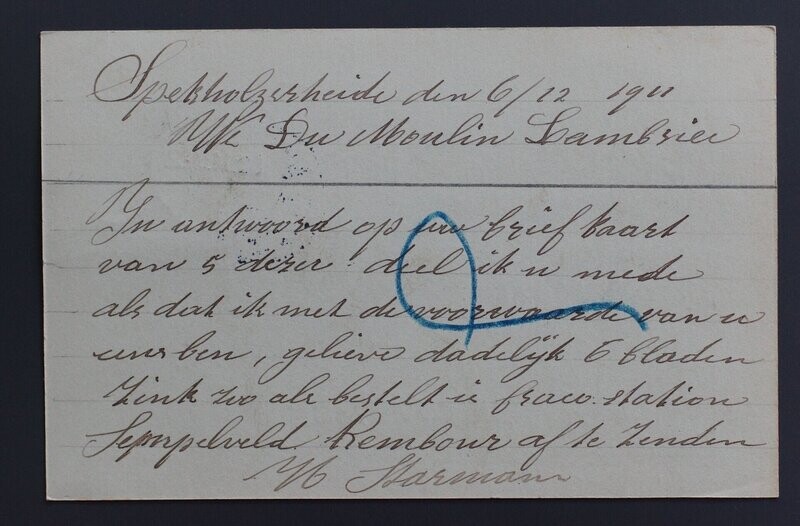 Spekholzerheide den 6/12 1911
Du Moulin Lambriex
In antwoord op uw briefkaart
van 5 dezer deel ik u mede
als dat ik met de voorwaarde van u
eens ben, gelieve dadelijk 6 bladen
Zink zoo als bestelt is station
Sempelveld Rembour af te Zenden
Starmans